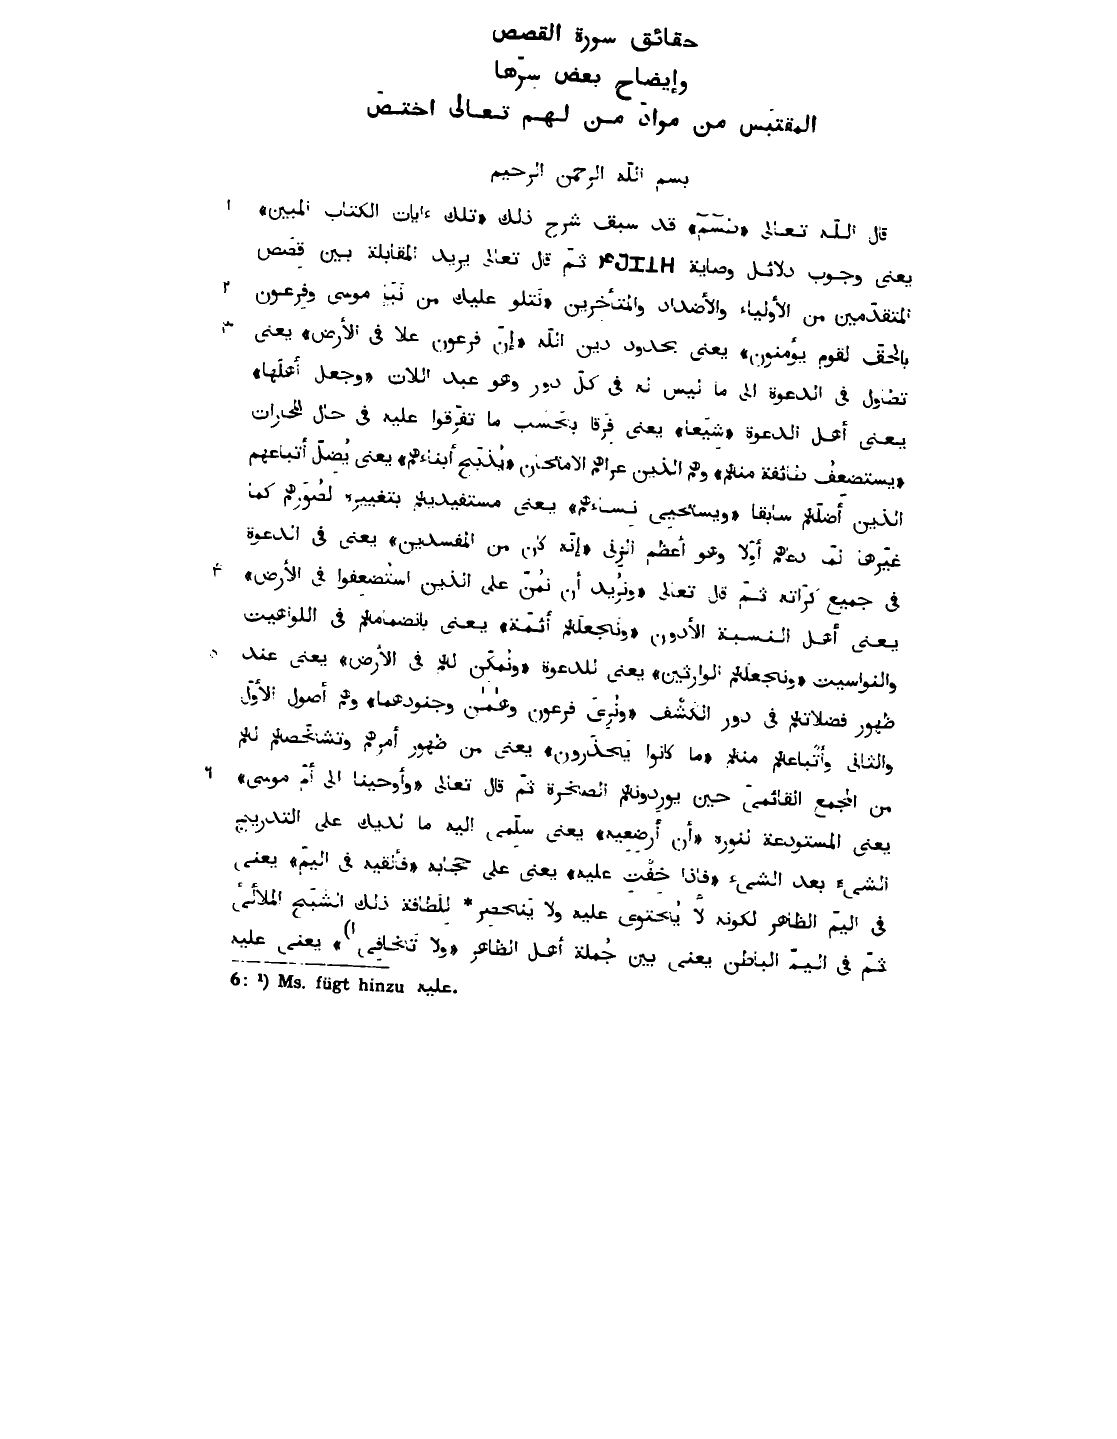 حقائق سورة القصص
وإيضاح بعض سِرّها
المقتبَس من موادّ من لهم تعالى اختصّ
بسم اللّه الرحمن الرحيم
قال اللّه تعالى «طٓسٓمٓ» قد سبق شرح ذلك «تلك ءايات الكتاب المبين» ١
يعنى وجوب دلائل وصاية ثمّ قال تعالى يريد المقابلة بين قِصَص
المتقدّمين من الأولياء والأضداد والمتأخرين «نَتلو عليك من نَبَإِ موسى وفِرعون ٢
بالحقّ لقوم يؤمنون» يعنى بحدود دين اللّه «إنّ فرعون علا فى الأرض» يعنى ٣
تطاول فى الدعوة الى ما ليس له فى كلّ دور وهو عبد اللات «وجعل أهلَها»
يعنى أهل الدعوة «شِيَعا» يعنى فِرَقا بحَسَب ما تفرّقوا عليه فى حال
«يستضعِفُ طائفة منهم» وهم الذين عراهم الامتحان «يُذبّح أبناءهم» يعنى يُضِلّ أتباعهم
الذين أضلّهم سابقا «ويستحيى نساءهم» يعنى مستفيديهم بتغييره لصُوَرهم كما
غيّرها لمّا دعاهم أوّلا وهو أعظم الزنى «إنّه كان من المفسدين» يعنى فى الدعوة
فى جميع كرّاته ثمّ قال تعالى «ونُريد أن نمُنّ على الذين استُضعِفوا فى الأرض» ۴
يعنى أهل النسبة الأدون «ونجعلَهم أئمّة» يعنى بانضمامهم فى اللواهيت
والنواسيت «ونجعلَهم الوارثين» يعنى للدعوة «ونُمكّن لهم فى الأرض» يعنى عند ٥
ظهور فضلاتهم فى دور الكشف «ونُرِىَ فرعون وهٰمٰن وجنودهما» وهم أصول الأوّل
والثانى وأتباعهم منهم «ما كانوا يَحذَرون» يعنى من ظهور أمرهم وتشخّصهم لهم
من المجمع القائمىّ حين يوردونهم الصخرة ثمّ قال تعالى «وأوحينا الى أمّ موسى» ٦
يعنى المستودعة لنوره «أن أرضِعيه» يعنى سلّمى اليه ما لديك على التدريج
الشىء بعد الشىء «فإذا خِفْتِ عليه» يعنى على حجابه «فألقيه فى اليمّ» يعنى
فى اليمّ الظاهر لكونه لا يُحتوى عليه ولا يَنحصِر* لِلَطافة ذلك الشبَح الملأئىّ
ثمّ فى اليمّ الباطن يعنى بين جُملة أهل الظاهر «ولا تَخافِى¹)» يعنى عليه
6: ¹) Ms. fügt hinzu عليه.